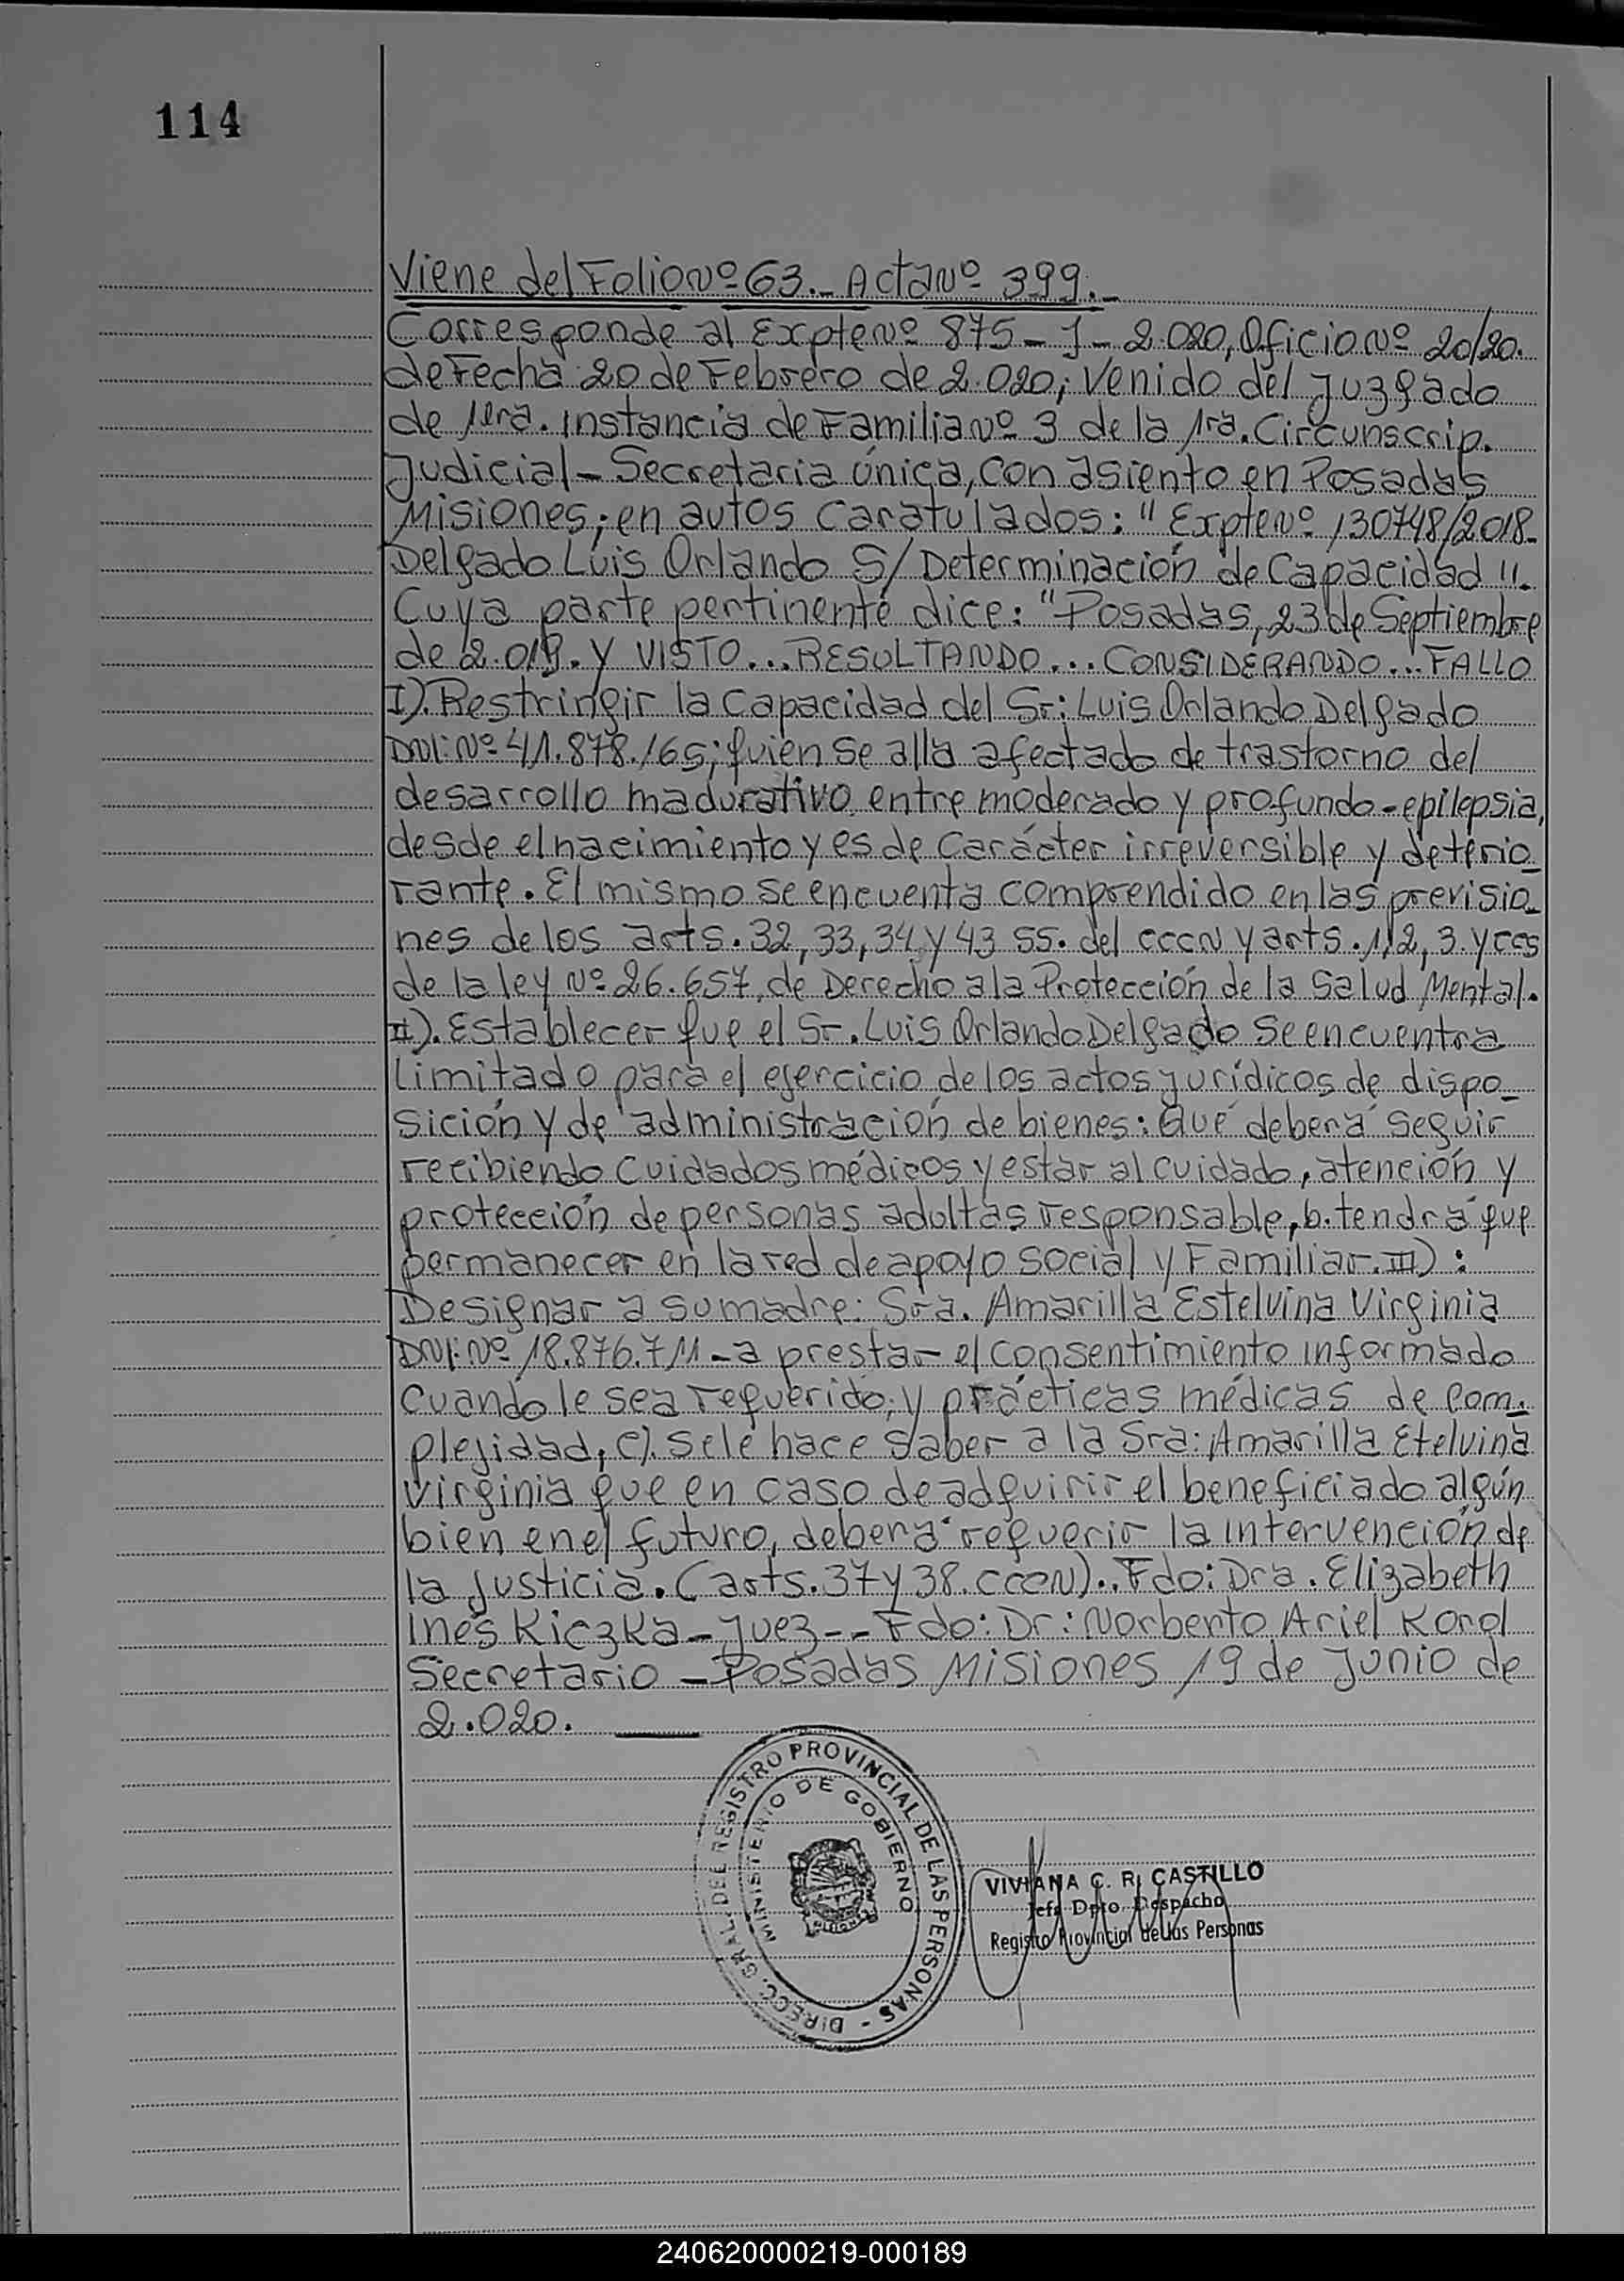 114
Viene del Folio Nº 63.- Acta Nº 399.-
Corresponde al Expte Nº 875-J-2.020, Oficio Nº 20/20.
de Fecha 20 de Febrero de 2.020; Venido del Juzgado
de 1era. Instancia de Familia Nº 3 de la 1ra. Circunscrip.
Judicial - Secretaria Única, con asiento en Posadas
Misiones; en autos caratulados: "Expte Nº 130748/2018-
Delgado Luis Orlando S/Determinación de Capacidad".
Cuya parte pertinente dice: "Posadas, 23 de Septiembre
de 2.019. Y VISTO... RESULTANDO... CONSIDERANDO... FALLO
I). Restringir la Capacidad del Sr: Luis Orlando Delgado
DNI: Nº 41.878.165; quien se alla afectado de trastorno del
desarrollo madurativo entre moderado y profundo-epilepsia,
desde el nacimiento y es de Carácter irreversible y deterio-
rante. El mismo se encuenta comprendido en las previsio-
nes de los arts. 32, 33, 34 y 43 ss. del CCCN y arts. 1, 2, 3. y ccs
de la ley Nº 26.657, de Derecho a la Protección de la Salud Mental.
II). Establecer que el Sr. Luis Orlando Delgado se encuentra
limitado para el ejercicio de los actos jurídicos de dispo-
sición y de administración de bienes: Qué deberá seguir
recibiendo cuidados médicos y estar al cuidado, atención y
protección de personas adultas responsable, b. tendrá que
permanecer en la red de apoyo social y Familiar. III):
Designar a su madre: Sra. Amarilla Estelvina Virginia
DNI: Nº 18.876.711 - a prestar el consentimiento informado
cuando le sea requerido; y prácticas médicas de com-
plejidad; c). se le hace saber a la Sra: Amarilla Etelvina
Virginia que en caso de adquirir el beneficiado algún
bien en el futuro, deberá requerir la intervención de
la Justicia. (arts. 37 y 38. CCCN).. Fdo: Dra. Elizabeth
Inés Kiczka - Juez -- Fdo: Dr: Norberto Ariel Korol
Secretario - Posadas Misiones 19 de Junio de
2.020.
DIRECC. GRAL. DEL REGISTRO PROVINCIAL DE LAS PERSONAS -
MINISTERIO DE GOBIERNO
VIVIANA C. R. CASTILLO
Jefe Dpto. Despacho
Registro Provincial de las Personas
240620000219-000189